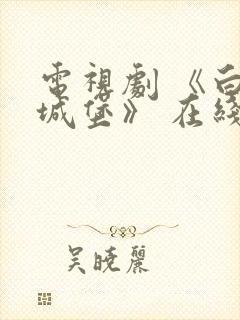 電視劇《白
城堡》 在綫
吴曉麗